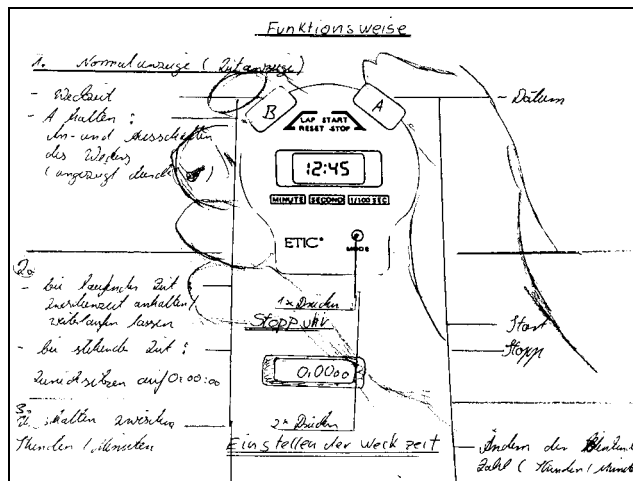 Funktionsweise
1. Normalanzeige (Zeitanzeige)
- Weckzeit
- A halten:
An- und Ausschalten
des Weckers
(angezeigt durch
B
A
- Datum
LAP START
RESET STOP
12:45
MINUTE SECOND 1/100 SEC
ETIC
MODE
2.
- bei laufender Zeit
Zwischenzeit anhalten/
weiterlaufen lassen
- bei stehender Zeit:
Zurücksetzen auf 0:00:00
1x Drücken
Stoppuhr
0,0000
Start
Stopp
3.
schalten zwischen
Stunden / Minuten
2x Drücken
Einstellen der Weckzeit
- Ändern der
zahl (Stunden /